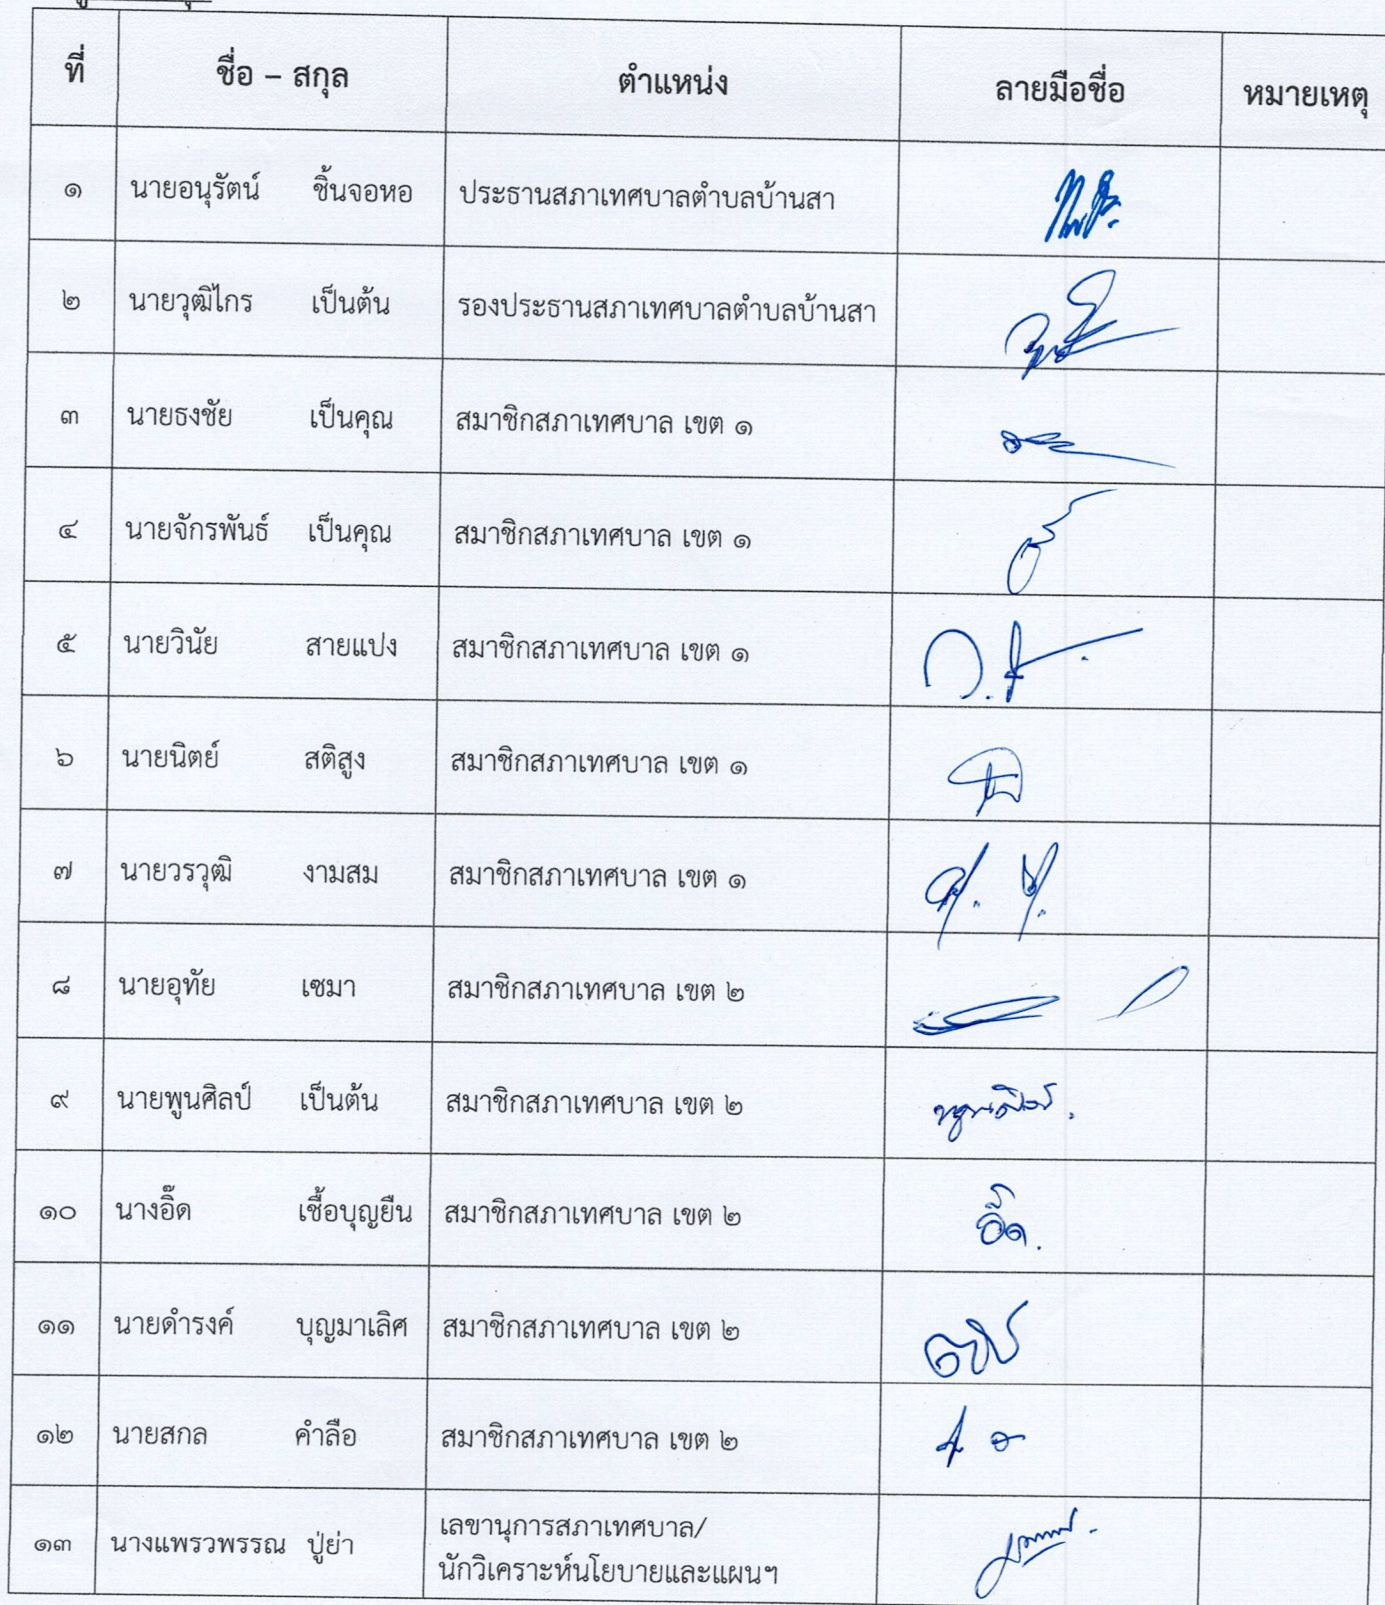 ที่ ชื่อ – สกุล ตำแหน่ง ลายมือชื่อ หมายเหตุ
๑ นายอนุรัตน์ ชิ้นจอหอ ประธานสภาเทศบาลตำบลบ้านสา
๒ นายวุฒิไกร เป็นต้น รองประธานสภาเทศบาลตำบลบ้านสา
๓ นายธงชัย เป็นคุณ สมาชิกสภาเทศบาล เขต ๑
๔ นายจักรพันธ์ เป็นคุณ สมาชิกสภาเทศบาล เขต ๑
๕ นายวินัย สายแปง สมาชิกสภาเทศบาล เขต ๑
๖ นายนิตย์ สติสูง สมาชิกสภาเทศบาล เขต ๑
๗ นายวรวุฒิ งามสม สมาชิกสภาเทศบาล เขต ๑
๘ นายอุทัย เซมา สมาชิกสภาเทศบาล เขต ๒
๙ นายพูนศิลป์ เป็นต้น สมาชิกสภาเทศบาล เขต ๒
๑๐ นางอิ๊ด เชื้อบุญยืน สมาชิกสภาเทศบาล เขต ๒ อิ๊ด.
๑๑ นายดำรงค์ บุญมาเลิศ สมาชิกสภาเทศบาล เขต ๒
๑๒ นายสกล คำลือ สมาชิกสภาเทศบาล เขต ๒
๑๓ นางแพรวพรรณ ปู่ย่า เลขานุการสภาเทศบาล/
นักวิเคราะห์นโยบายและแผนฯ